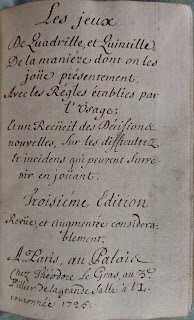 Les jeux
De Quadrille, et Quintille,
De la maniere dont on les
joüe présentement.
Avec les Régles établies par
l'Usage;
Et un Recüeil des Décisions
nouvelles, sur les difficultez
et incidens qui peuvent surve-
nir en joüant.
Troisiéme Edition
Revüe, et Augmentée considera-
blement.
A Paris, au Palais
Chez Théodore Le Gras, au 3.e
Pillier de la grande Salle à l'L
couronnée 1725.